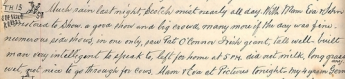 TH 13 Much rain last night Scotch mist nearly all day. With Mam Eva & John
motored to Show a good show and big crowd, many more if the day was fine.
numerous side shows, in one only, saw Pat O'Connor Irish giant, tall well-built
man very intelligent to speak to, left for home at 5 pm, did not milk, long grass
wet not nice to go through for cows. Mam & Eva at Pictures tonight. My 4 gram